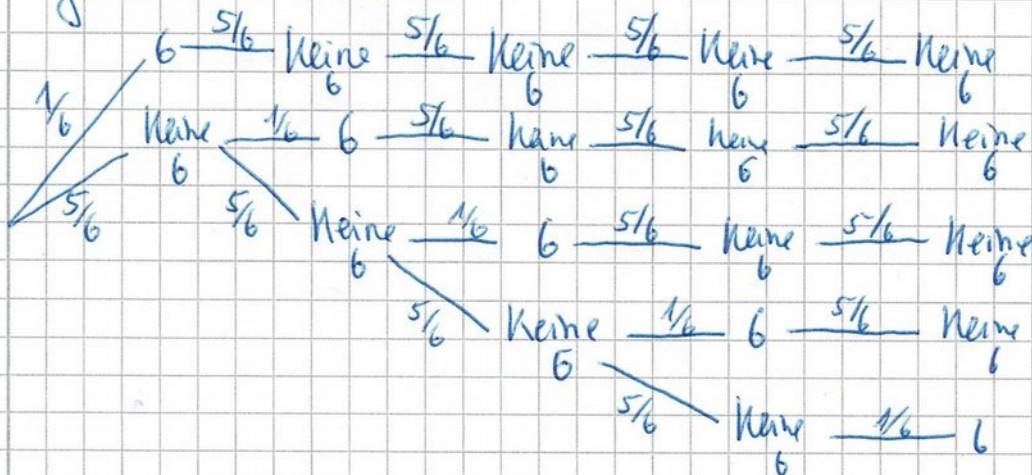 6 5/6 Keine 6 5/6 Keine 6 5/6 Keine 6 5/6 Keine 6
1/6
Keine 6 1/6 6 5/6 Keine 6 5/6 Keine 6 5/6 Keine 6
5/6 5/6
Keine 6 1/6 6 5/6 Keine 6 5/6 Keine 6
5/6
Keine 6 1/6 6 5/6 Keine 6
5/6
Keine 6 1/6 6